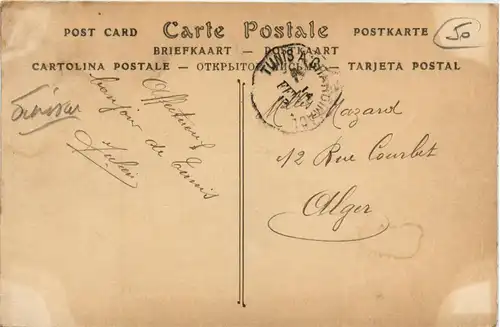 POST CARD Carte Postale POSTKARTE
BRIEFKAART — POSTKAART
CARTOLINA POSTALE — ОТКРЫТОЕ ПИСЬМО — TARJETA POSTAL
50
TUNIS
Affectueux
bonjour de Tunis
Mazard
12 Rue Courbet
Alger